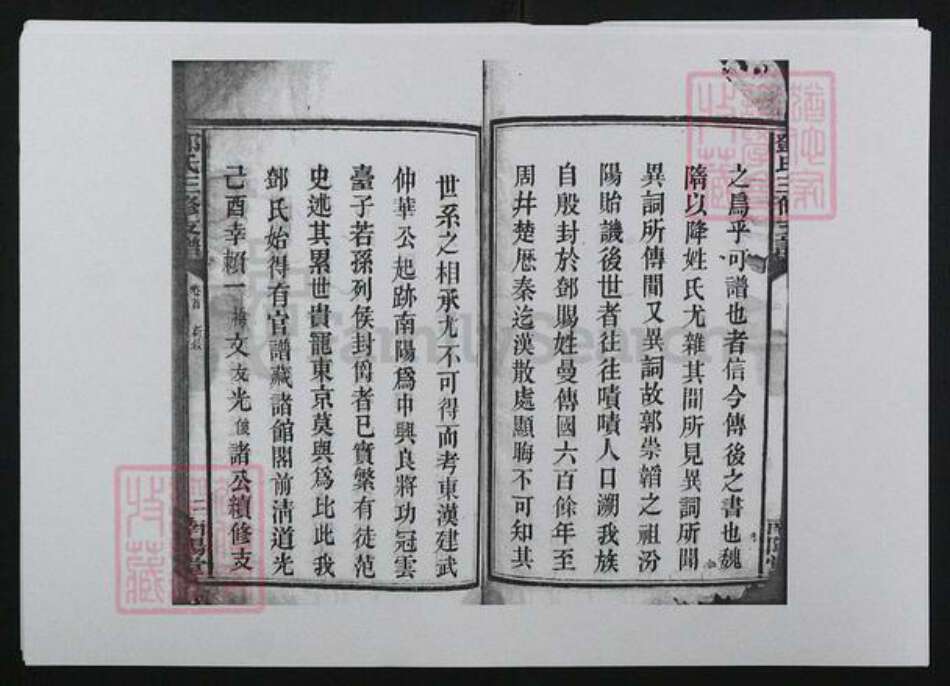 鄧氏三修支譜
之爲乎可譜也者信今傳後之書也魏
隋以降姓氏尤雜其間所見異詞所聞
異詞所傳聞又異詞故郭崇韜之祖汾
陽貽譏後世者往往嘖嘖人口溯我族
自殷封於鄧賜姓曼傳國六百餘年至
周幷楚厯秦迄漢散處顯晦不可知其
世系之相承尤不可得而考東漢建武
仲華公起跡南陽爲中興良將功冠雲
臺子若孫列侯封爵者已實繁有徒范
史述其累世貴寵東京莫與爲比此我
鄧氏始得有官譜藏諸館閣前淸道光
己酉幸賴一 文友光俊諸公續修支
鄧氏三修支譜
卷首
二
南陽堂
南陽堂
收藏
收藏
FamilySearch